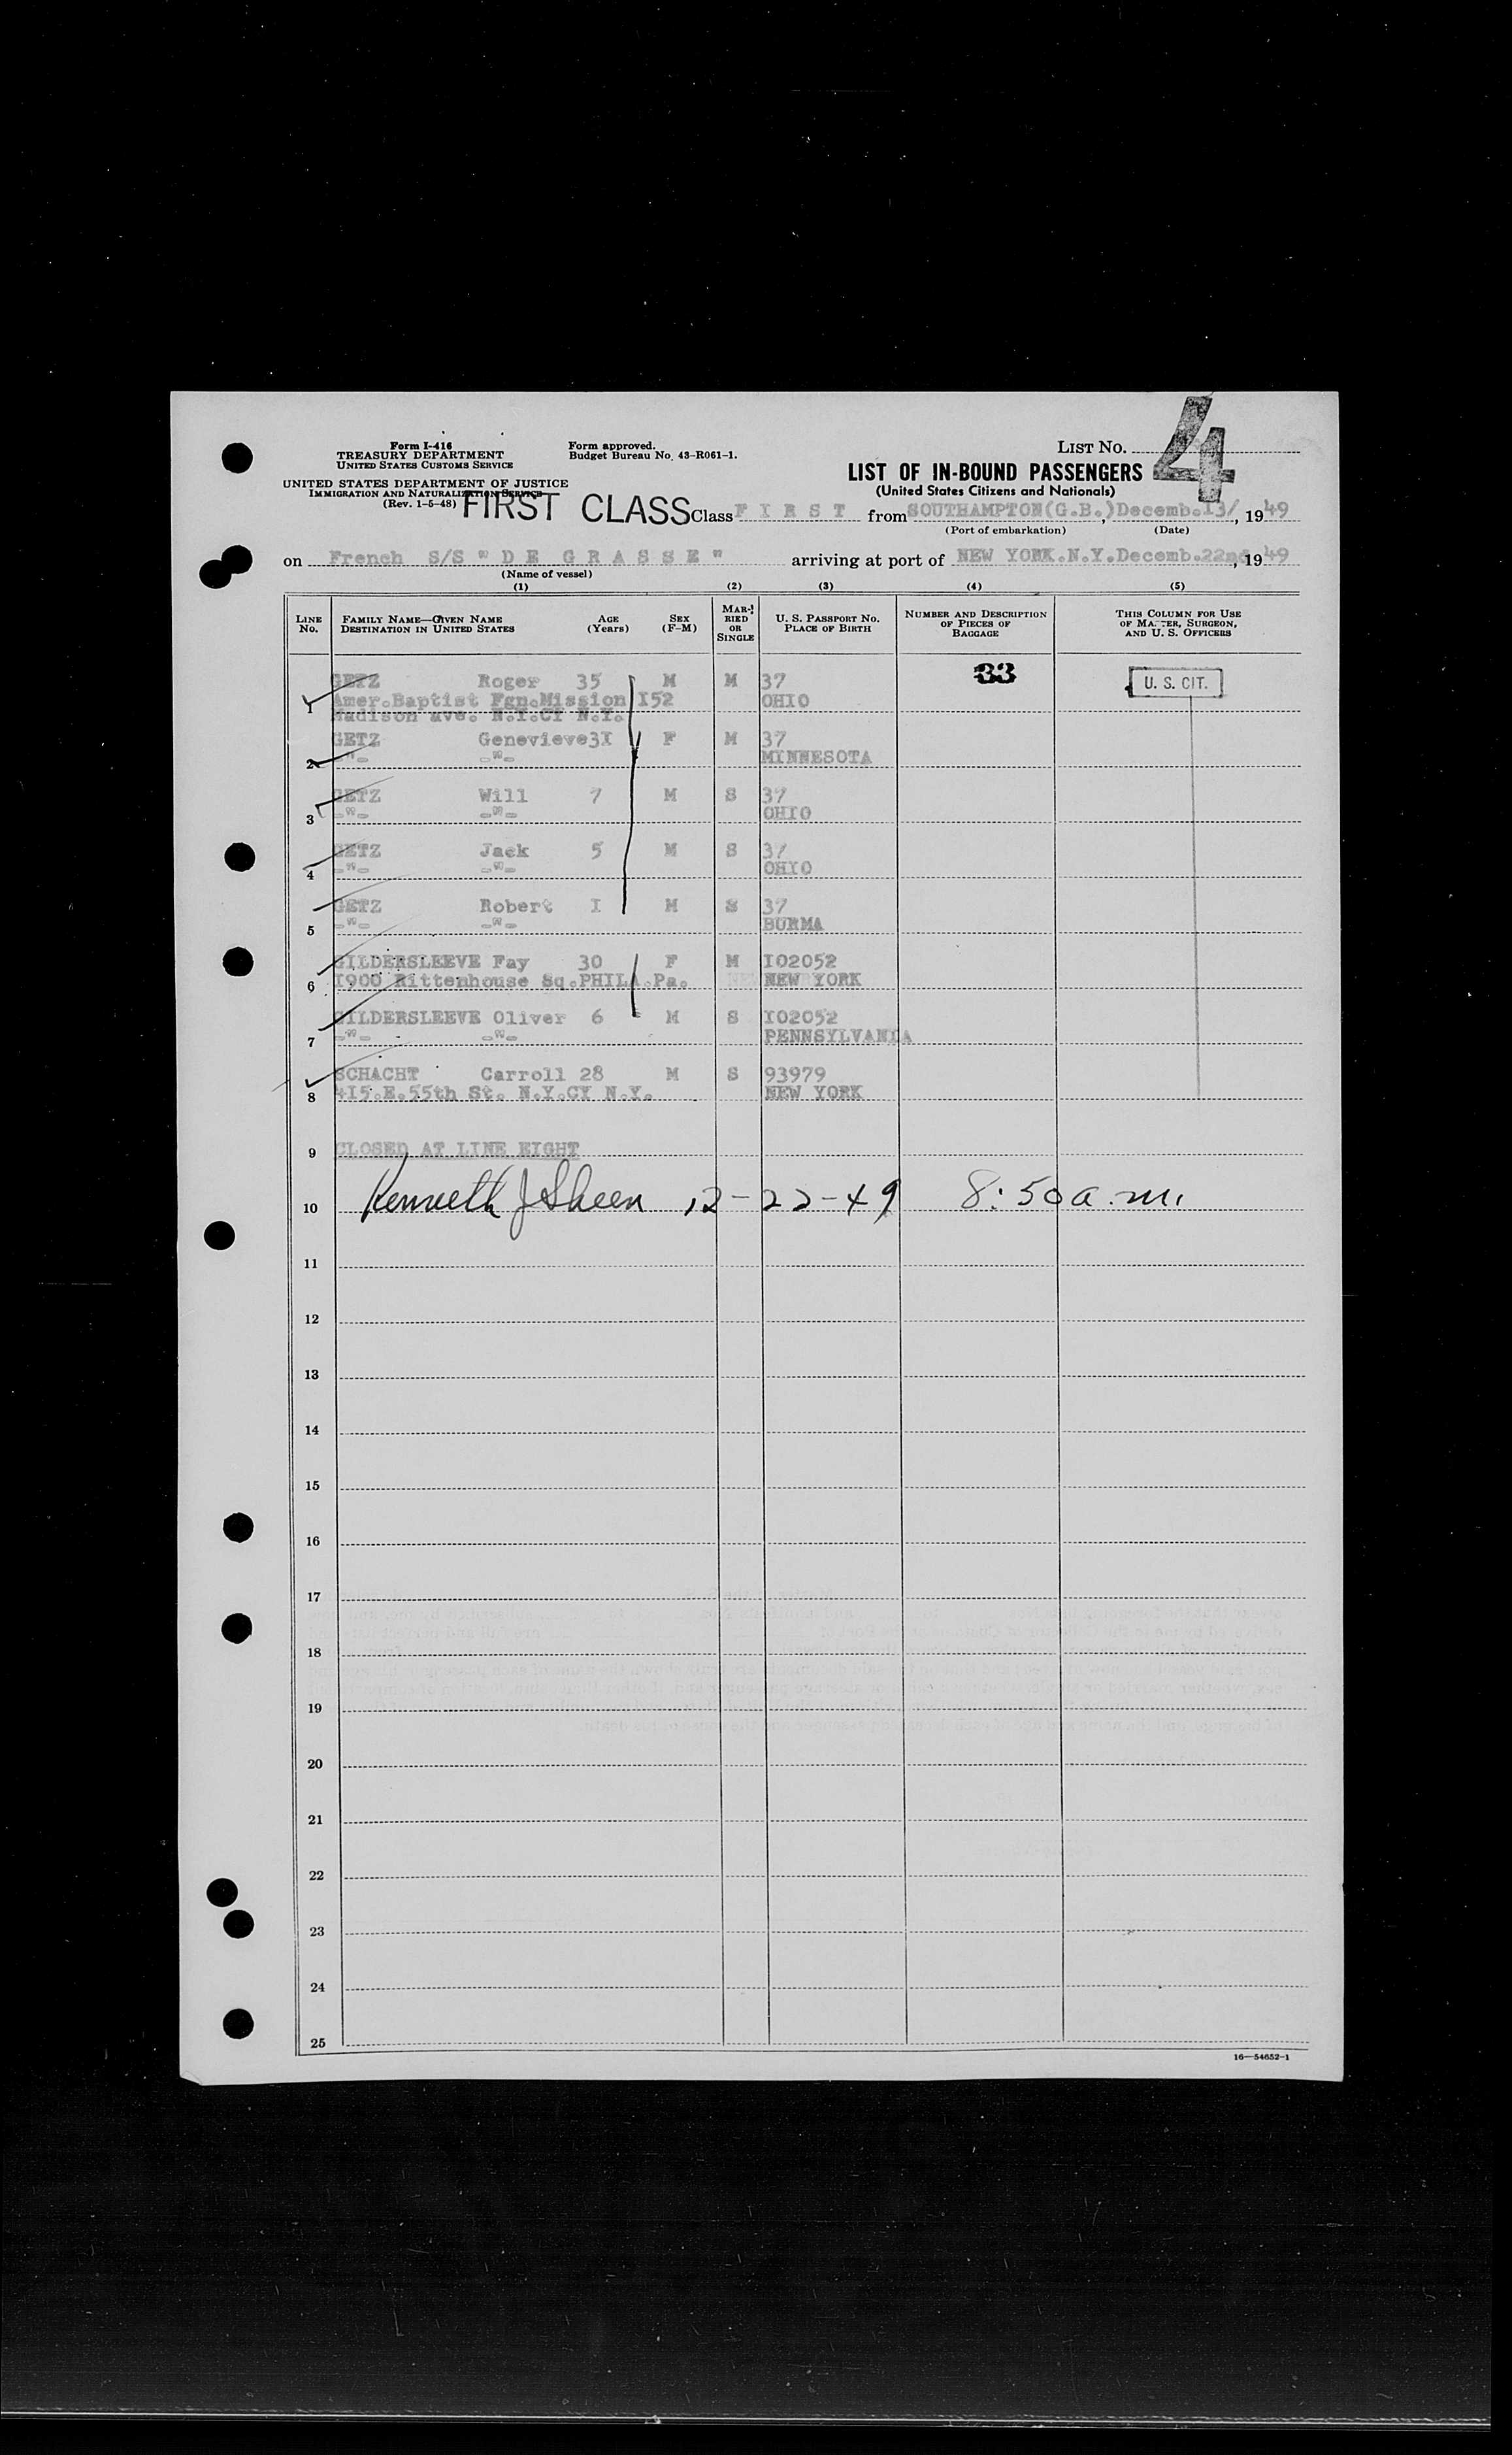 Form I-416
TREASURY DEPARTMENT
UNITED STATES CUSTOMS SERVICE
Form approved.
Budget Bureau No. 43-R061-1.
LIST NO. 4
UNITED STATES DEPARTMENT OF JUSTICE
IMMIGRATION AND NATURALIZATION SERVICE
(Rev. 1-5-48)
LIST OF IN-BOUND PASSENGERS
(United States Citizens and Nationals)
FIRST CLASS Class F I R S T from SOUTHAMPTON(G.B.), Decemb.13/, 1949
(Port of embarkation) (Date)
on French S/S " D E G R A S S E " arriving at port of NEW YORK.N.Y.Decemb.22nd, 1949
(Name of vessel)
(1) (2) (3) (4) (5)
LINE NO. FAMILY NAME—GIVEN NAME DESTINATION IN UNITED STATES AGE (Years) SEX (F-M) MARRIED OR SINGLE U. S. PASSPORT NO. PLACE OF BIRTH NUMBER AND DESCRIPTION OF PIECES OF BAGGAGE THIS COLUMN FOR USE OF MASTER, SURGEON, AND U. S. OFFICERS
GETZ Roger 35 M M 37 33 U. S. CIT.
1 Amer.Baptist Fgn.Mission I52 OHIO
Madison ave. N.Y.CY N.Y.
GETZ Genevieve 3I F M 37
2 -"- -"- MINNESOTA
GETZ Will 7 M S 37
3 -"- -"- OHIO
GETZ Jack 5 M S 37
4 -"- -"- OHIO
GETZ Robert I M S 37
5 -"- -"- BURMA
GILDERSLEEVE Fay 30 F M I02052
6 I900 Rittenhouse Sq.PHILA.Pa. NEW YORK
GILDERSLEEVE Oliver 6 M S I02052
7 -"- -"- PENNSYLVANIA
SCHACHT Carroll 28 M S 93979
8 4I5.E.55th St. N.Y.CY N.Y. NEW YORK
9 CLOSED AT LINE EIGHT
10 Kenneth J Sheen 12-22-49 8:50 a.m.
11
12
13
14
15
16
17
18
19
20
21
22
23
24
25
16—54652-1